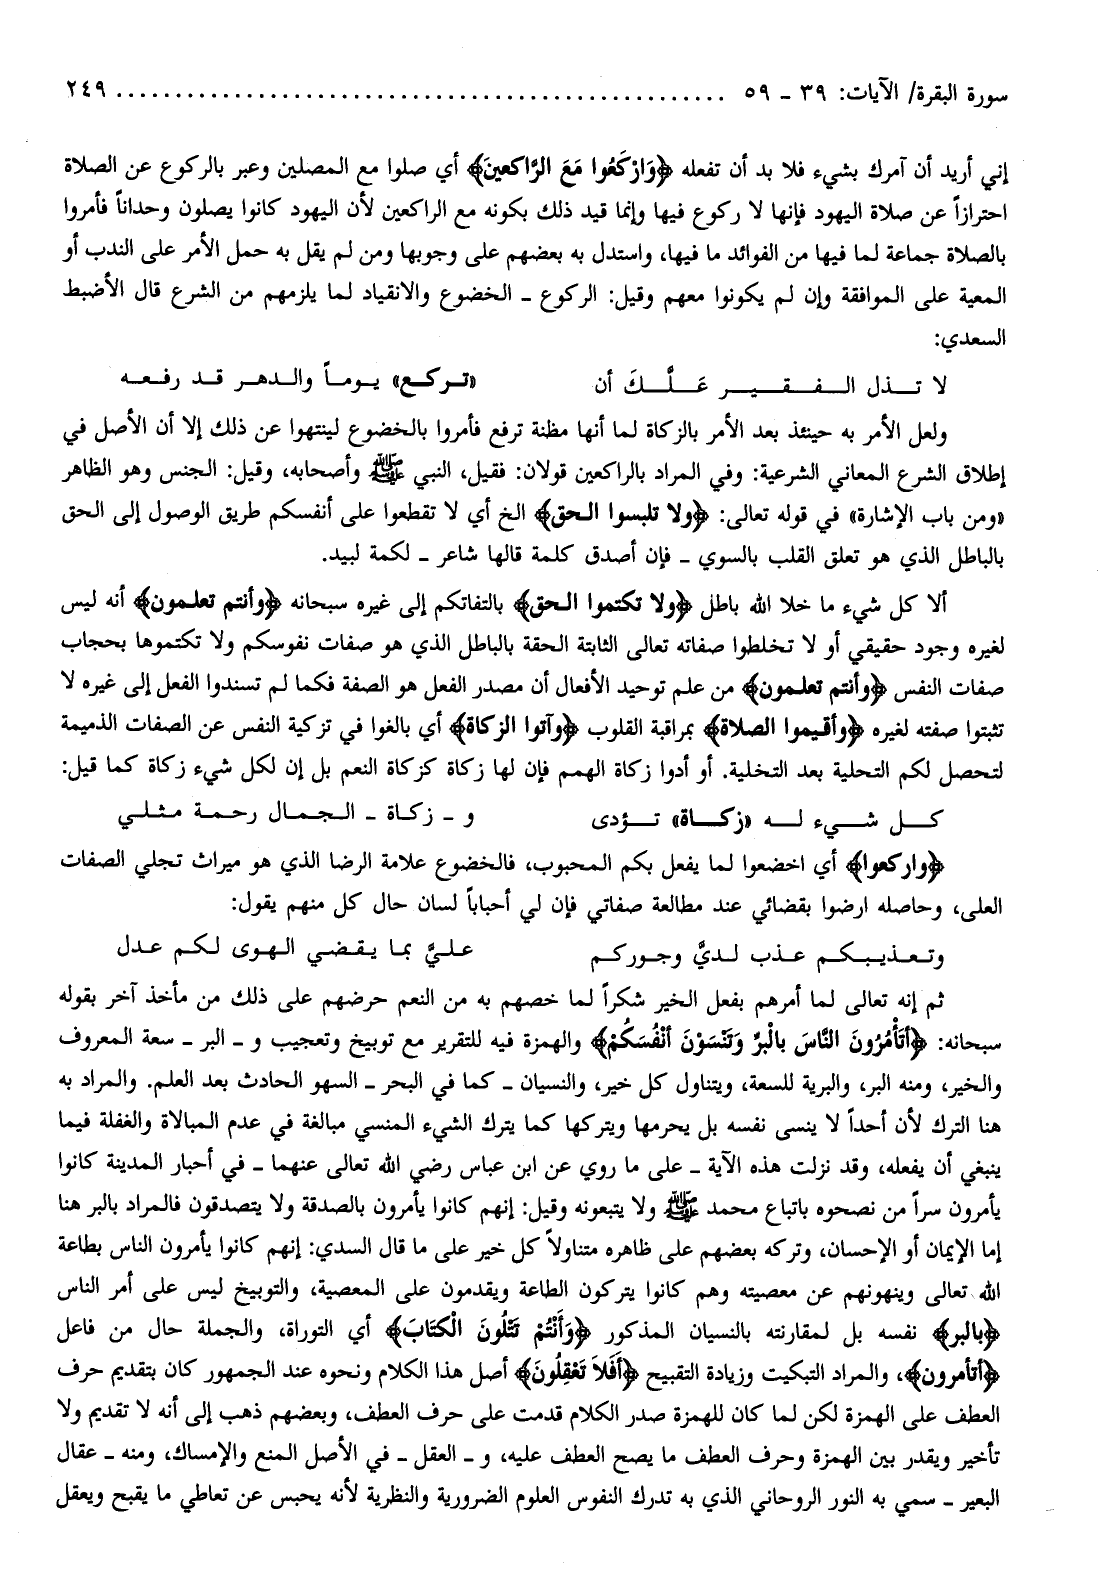 سورة البقرة/ الآيات: ٣٩ ـ ٥٩ ................................................... ٢٤٩
إني أريد أن آمرك بشيء فلا بد أن تفعله ﴿وَارْكَعُوا مَعَ الرَّاكعينَ﴾ أي صلوا مع المصلين وعبر بالركوع عن الصلاة
احترازاً عن صلاة اليهود فإنها لا ركوع فيها وإنما قيد ذلك بكونه مع الراكعين لأن اليهود كانوا يصلون وحداناً فأمروا
بالصلاة جماعة لما فيها من الفوائد ما فيها، واستدل به بعضهم على وجوبها ومن لم يقل به حمل الأمر على الندب أو
المعية على الموافقة وإن لم يكونوا معهم وقيل: الركوع ـ الخضوع والانقياد لما يلزمهم من الشرع قال الأضبط
السعدي:
لا تـذل الـفـقـيـر عَـلَّـكَ أن «تـركـع» يـومـاً والـدهـر قـد رفـعـه
ولعل الأمر به حينئذ بعد الأمر بالزكاة لما أنها مظنة ترفع فأمروا بالخضوع لينتهوا عن ذلك إلا أن الأصل في
إطلاق الشرع المعاني الشرعية: وفي المراد بالراكعين قولان: فقيل، النبي ﷺ وأصحابه، وقيل: الجنس وهو الظاهر
«ومن باب الإشارة» في قوله تعالى: ﴿ولا تلبسوا الحق﴾ الخ أي لا تقطعوا على أنفسكم طريق الوصول إلى الحق
بالباطل الذي هو تعلق القلب بالسوي ـ فإن أصدق كلمة قالها شاعر ـ لكمة لبيد.
ألا كل شيء ما خلا الله باطل ﴿ولا تكتموا الحق﴾ بالتفاتكم إلى غيره سبحانه ﴿وأنتم تعلمون﴾ أنه ليس
لغيره وجود حقيقي أو لا تخلطوا صفاته تعالى الثابتة الحقة بالباطل الذي هو صفات نفوسكم ولا تكتموها بحجاب
صفات النفس ﴿وأنتم تعلمون﴾ من علم توحيد الأفعال أن مصدر الفعل هو الصفة فكما لم تسندوا الفعل إلى غيره لا
تثبتوا صفته لغيره ﴿وأقيموا الصلاة﴾ بمراقبة القلوب ﴿وآتوا الزكاة﴾ أي بالغوا في تزكية النفس عن الصفات الذميمة
لتحصل لكم التحلية بعد التخلية. أو أدوا زكاة الهمم فإن لها زكاة كزكاة النعم بل إن لكل شيء زكاة كما قيل:
كـل شـيء لـه «زكـاة» تـؤدى و ـ زكـاة ـ الـجـمـال رحـمـة مـثـلـي
﴿واركعوا﴾ أي اخضعوا لما يفعل بكم المحبوب، فالخضوع علامة الرضا الذي هو ميراث تجلي الصفات
العلى، وحاصله ارضوا بقضائي عند مطالعة صفاتي فإن لي أحباباً لسان حال كل منهم يقول:
وتـعـذيـبـكـم عـذب لـديَّ وجـوركـم عـلـيَّ بمـا يـقـضـي الـهـوى لـكـم عـدل
ثم إنه تعالى لما أمرهم بفعل الخير شكراً لما خصهم به من النعم حرضهم على ذلك من مأخذ آخر بقوله
سبحانه: ﴿أتَأْمُرُونَ النَّاسَ بالْبرِّ وَتَنْسَوْنَ أنْفُسَكُمْ﴾ والهمزة فيه للتقرير مع توبيخ وتعجيب و ـ البر ـ سعة المعروف
والخير، ومنه البر، والبرية للسعة، ويتناول كل خير، والنسيان ـ كما في البحر ـ السهو الحادث بعد العلم. والمراد به
هنا الترك لأن أحداً لا ينسى نفسه بل يحرمها ويتركها كما يترك الشيء المنسي مبالغة في عدم المبالاة والغفلة فيما
ينبغي أن يفعله، وقد نزلت هذه الآية ـ على ما روي عن ابن عباس رضي الله تعالى عنهما ـ في أحبار المدينة كانوا
يأمرون سراً من نصحوه باتباع محمد ﷺ ولا يتبعونه وقيل: إنهم كانوا يأمرون بالصدقة ولا يتصدقون فالمراد بالبر هنا
إما الإيمان أو الإحسان، وتركه بعضهم على ظاهره متناولاً كل خير على ما قال السدي: إنهم كانوا يأمرون الناس بطاعة
الله تعالى وينهونهم عن معصيته وهم كانوا يتركون الطاعة ويقدمون على المعصية، والتوبيخ ليس على أمر الناس
﴿بالبر﴾ نفسه بل لمقارنته بالنسيان المذكور ﴿وَأَنْتُمْ تَتْلُونَ الْكتَابَ﴾ أي التوراة، والجملة حال من فاعل
﴿أتأمرون﴾، والمراد التبكيت وزيادة التقبيح ﴿أَفَلاَ تَعْقِلُونَ﴾ أصل هذا الكلام ونحوه عند الجمهور كان بتقديم حرف
العطف على الهمزة لكن لما كان للهمزة صدر الكلام قدمت على حرف العطف، وبعضهم ذهب إلى أنه لا تقديم ولا
تأخير ويقدر بين الهمزة وحرف العطف ما يصح العطف عليه، و ـ العقل ـ في الأصل المنع والإمساك، ومنه ـ عقال
البعير ـ سمي به النور الروحاني الذي به تدرك النفوس العلوم الضرورية والنظرية لأنه يحبس عن تعاطي ما يقبح ويعقل